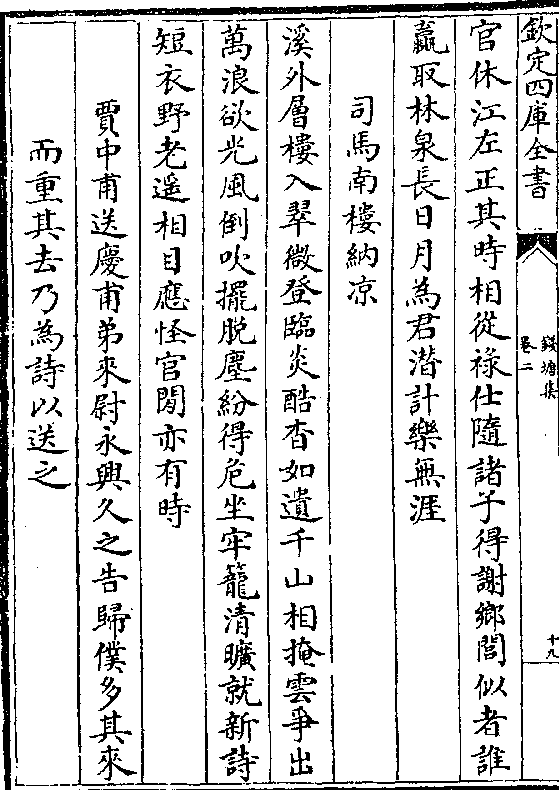 欽定四庫全書
錢塘集
卷二
十九
官休江左正其時相從祿仕隨諸子得謝鄉閭似者誰
贏取林泉長日月為君潛計樂無涯
司馬南樓納凉
溪外層樓入翠微登臨炎酷杳如遺千山相掩雲爭出
萬浪欲光風倒吹擺脫塵紛得危坐牢籠清曠就新詩
短衣野老遥相目應怪官閒亦有時
賈中甫送慶甫弟來尉永興久之告歸僕多其來
而重其去乃為詩以送之